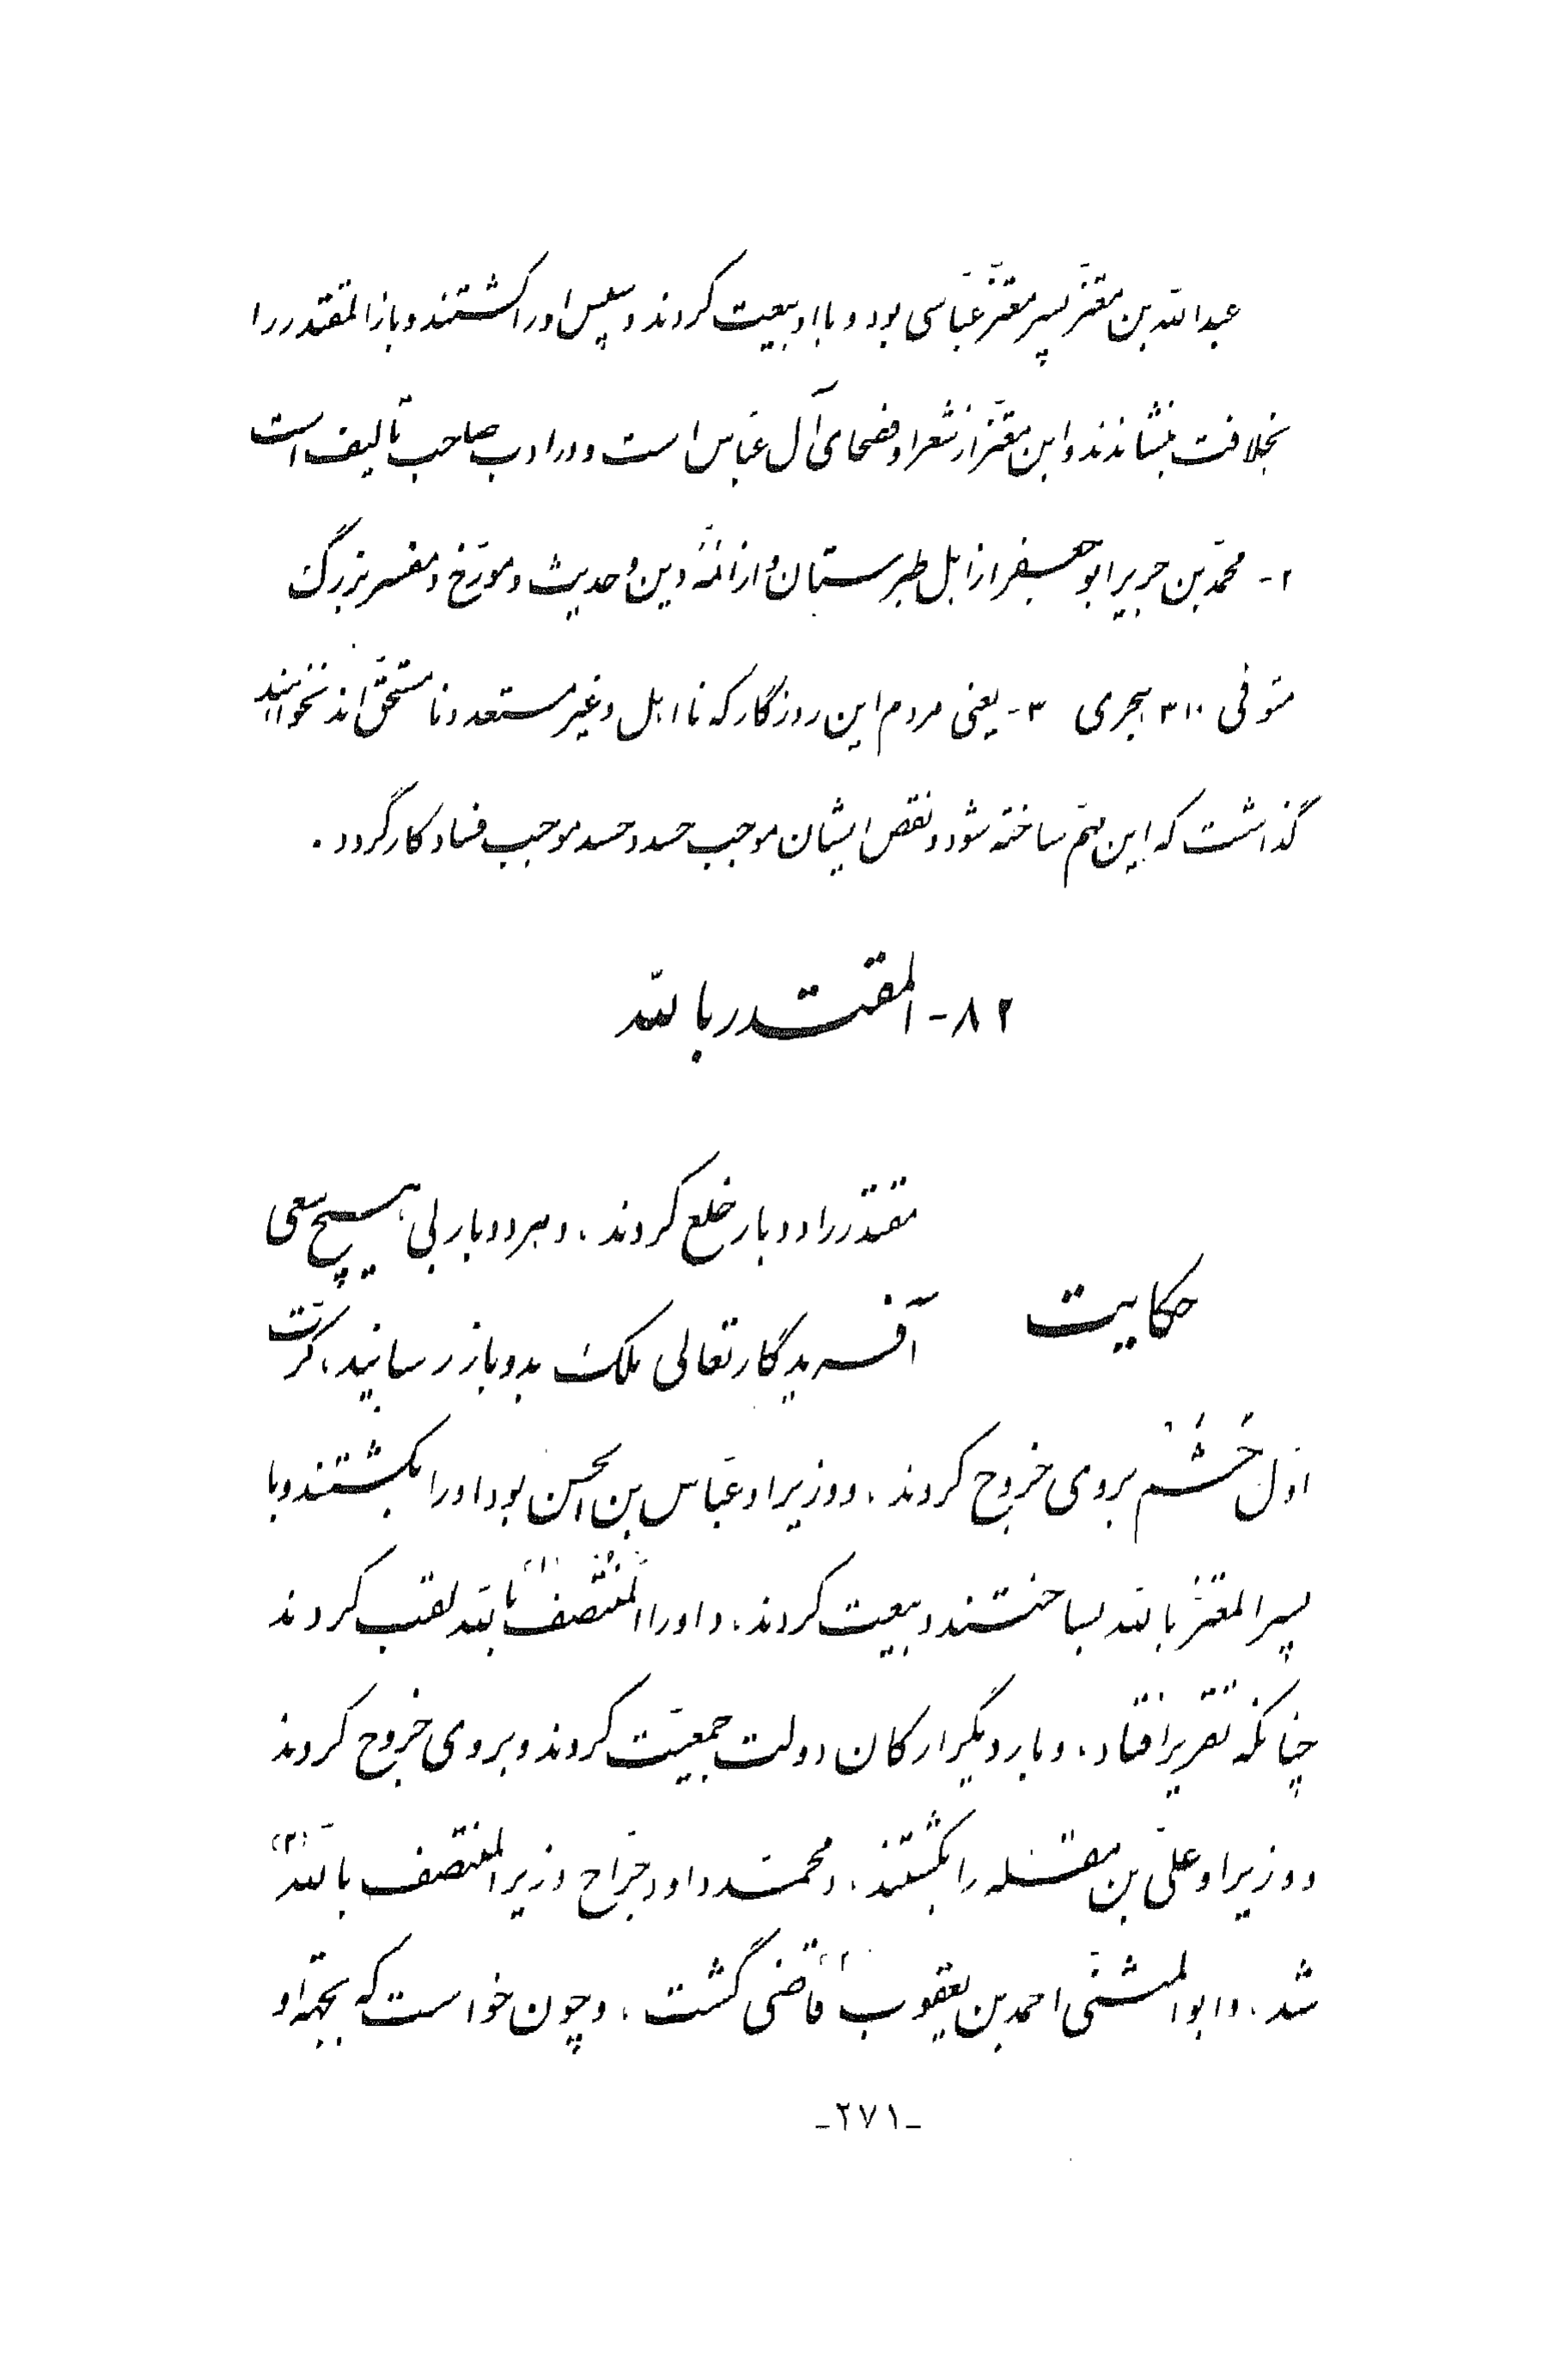 عبدالله بن معتزّ پسر معتزّ عبّاسی بود و با او بیعت کردند و سپس او را کشتند و باز المقتدر را
بخلافت بنشاندند و ابن معتزّ از شعرا و فصحای آل عبّاس است و در ادب صاحب تألیف است
۲- محمّد بن جریر ابو جعفر از اهل طبرستان و از ائمّه دین و حدیث و مورّخ و مفسر بزرگ
متوفی ۳۱۰ هجری ۳- یعنی مردم این روزگار که نا اهل و غیر مستعد و نا مستحقّ اند نخواهند
گذاشت که این مهمّ ساخته شود و نقص ایشان موجب حسد و حسد موجب فساد کار گردد .
۸۲- المقتدر بالله
مقتدر را دو بار خلع کردند ، و هر دو بار بی هیچ سعی
حکایت
آفریدگار تعالی ملک بدو باز رسانید ، کرّت
اوّل حَشَم بروی خروج کردند ، و وزیر او عبّاس بن الحسن بود او را بکشتند و با
پسر المعتزّ بالله بساختند و بیعت کردند ، و او را المُنْتَصِف بالله (۱) لقب کردند
چنانکه تقریر افتاد ، و بار دیگر ارکان دولت جمعیّت کردند و بروی خروج کردند
و وزیر او علیّ بن مقله را بکشتند ، و محمّد داود جرّاح وزیر المنتصف بالله (۲)
شد ، و ابو المثنّی احمد بن یعقوب قاضی گشت ، و چون خواست که بجهة او
-۲۷۱-